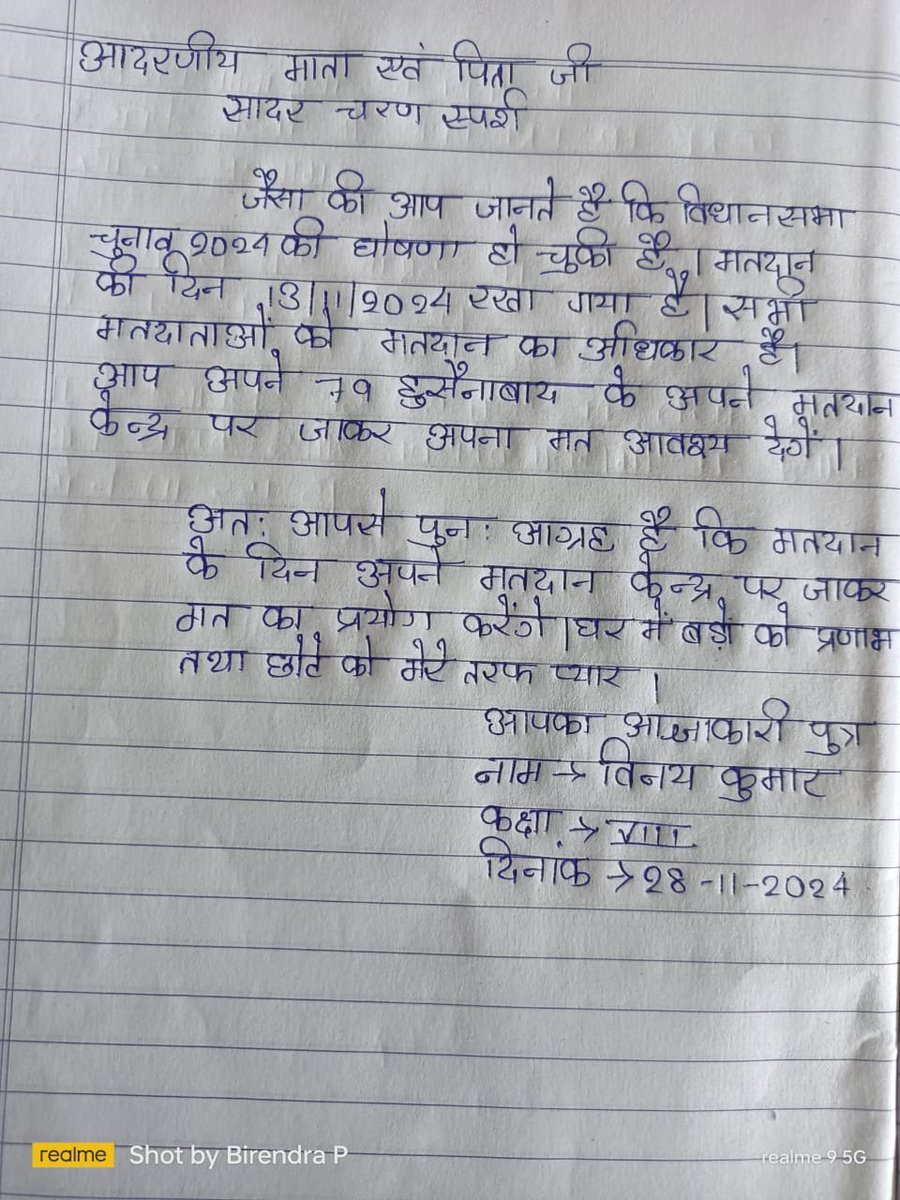 आदरणीय माता एवं पिता जी
सादर चरण स्पर्श
जैसा की आप जानते है कि विधानसभा
चुनाव 2024 की घोषणा हो चुकी है। मतदान
की दिन 13/11/2024 रखा गया है। सभी
मतदाताओं को मतदान का अधिकार है।
आप अपने 79 हुसैनाबाय के अपने मतयान
केन्द्र पर जाकर अपना मत आवश्य देगें।
अतः आपसे पुनः आग्रह है कि मतदान
के दिन अपने मतदान केन्द्र पर जाकर
मत का प्रयोग करेंगे। घर में बड़ो को प्रणाम
तथा छोटे को मेरे तरफ प्यार।
आपका आज्ञाकारी पुत्र
नाम → विनय कुमार
कक्षा → VIII
दिनांक → 28-11-2024
realme Shot by Birendra P realme 9 5G